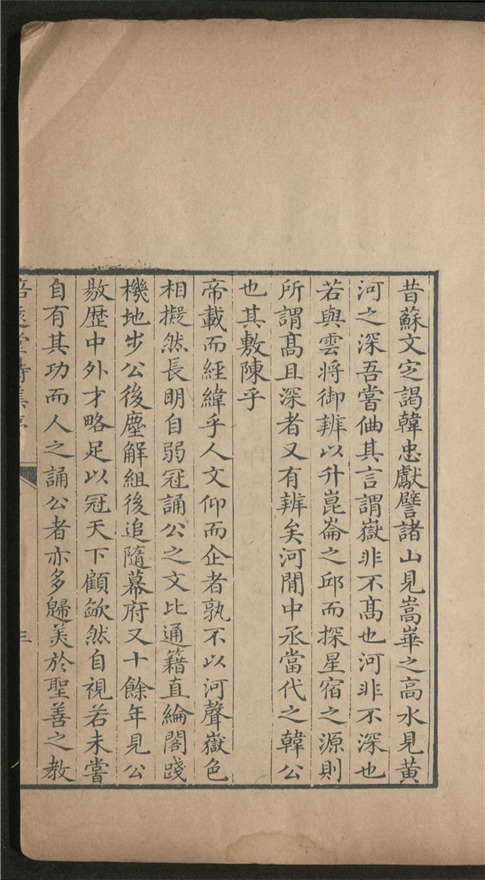 昔蘇文定謁韓忠獻譬諸山見嵩崋之高水見黃
河之深吾嘗伷其言謂嶽非不髙也河非不深也
若與雲將御辨以升崑崙之邱而探星宿之源則
所謂髙且深者又有辨矣河閒中丞當代之韓公
也其敷陳乎
帝載而經緯乎人文仰而企者孰不以河聲嶽色
相擬然長明自弱冠誦公之文比通籍直綸閣踐
機地步公後塵解組後追隨幕府又十餘年見公
敭歴中外才略足以冠天下顧欿然自視若未嘗
自有其功而人之誦公者亦多歸美於聖善之教
堂詩集序
三